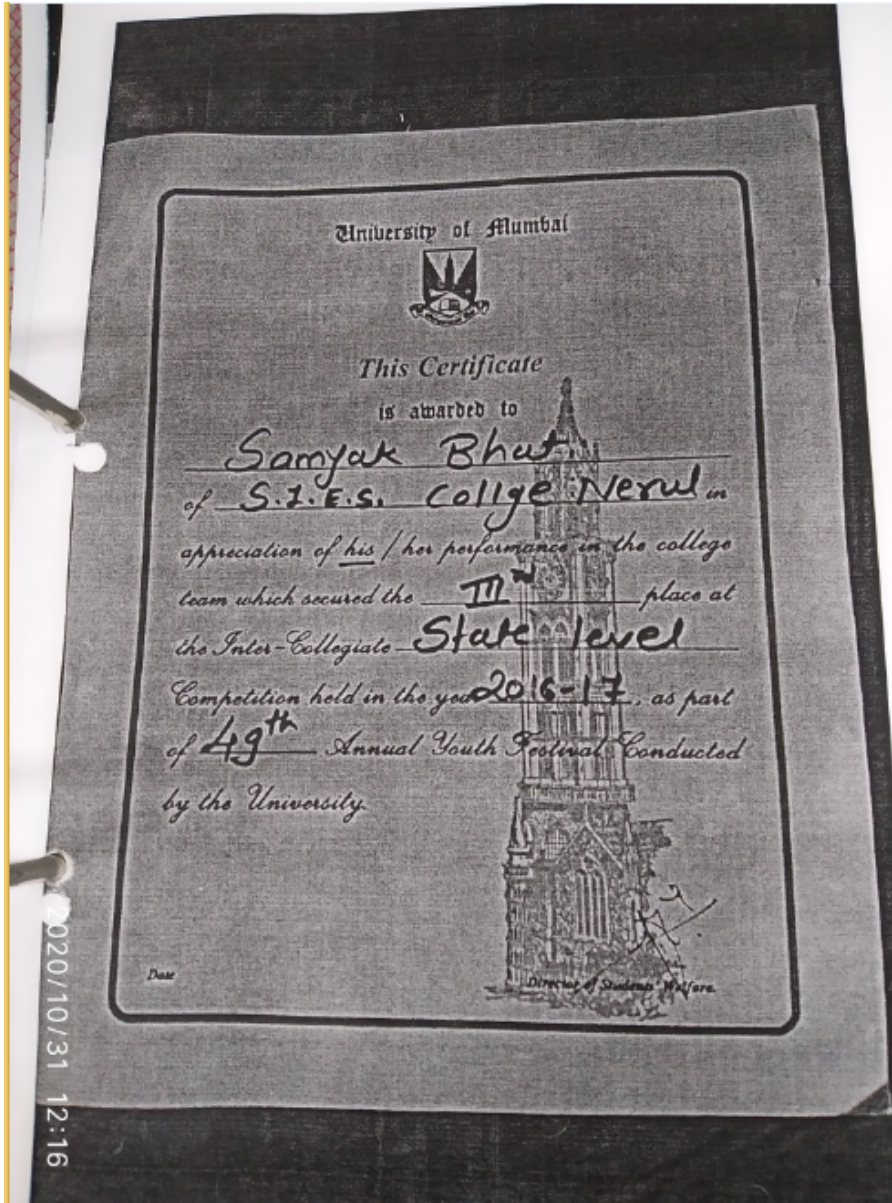 University of Mumbai
This Certificate
is awarded to
Samyak Bhat
of S.I.E.S. Collge Nerul in
appreciation of his / her performance in the college
team which secured the III rd place at
the Inter-Collegiate State level
Competition held in the year 2016-17, as part
of 49th Annual Youth Festival Conducted
by the University.
Date
Director of Students' Welfare.
2020/10/31 12:16